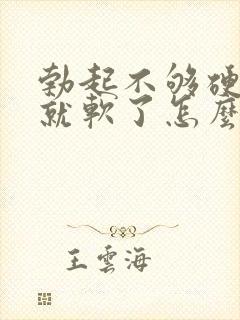 勃起不够硬
就軟了怎麽
王雲海